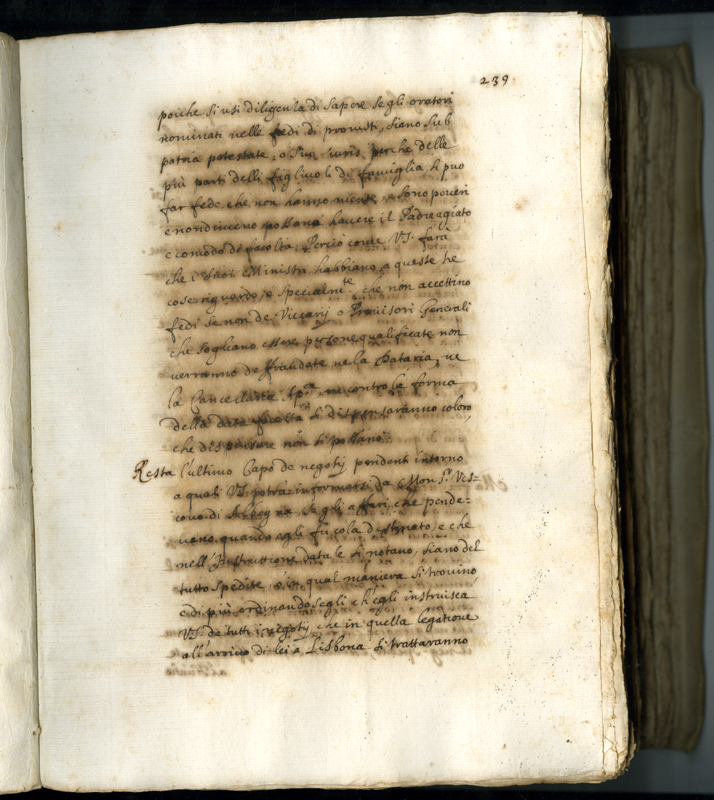 239.
poiche si usi diligenza di sapere se gli oratori
nominati nelle fedi di provisti, siano sub
patria potestate, o sui iuris, perche delle
più parti delli figlivoli di famiglia, si puo
far fede che non hanno niente, e sono poveri
e nondimeno possano havere il Padre agiato
e comodo di facolta, Perciò come VS. farà
che i suoi Ministri habbiano a queste tre
cose riguardo, e specialmte. che non accettino
fedi se non de Viccarij o Provisori Generali
che sogliano essere persone qualificate non
verranno defraudate ne la Dataria, ne
la Cancellaria Apca., ne contro la forma
della data facoltà si dispensaranno coloro,
che dispensare non si possano.
Resta l'ultimo Capo de negotij pendenti intorno
a quali VS. potrà informarsi da Mon Sr. Ves=
covo di Albegna, se gli affari che pende=
vano quando egli fu cola destinato, e che
nell'Instruttione data le si notano, siano del
tutto spedite, o in qual maniera si trovino
e di più ordinandosegli ch'egli instruisca
VS. de tutti i negotij che in quella legatione
all'arrivo di lei a Lisbona si trattaranno